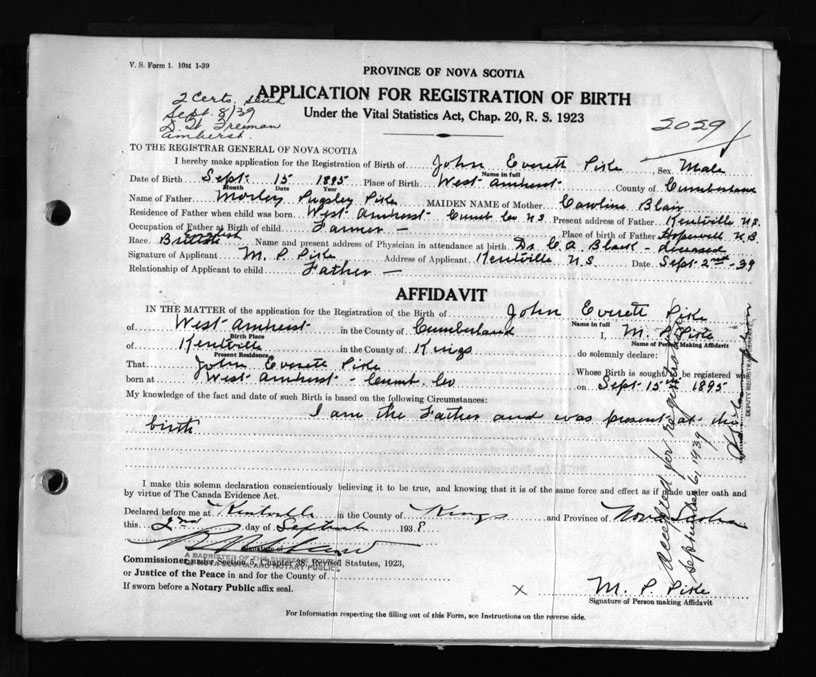 V. S. Form 1. 10M 1-39
PROVINCE OF NOVA SCOTIA
2 Certs. sent
Sept. 8/39
Freeman
Amherst.
APPLICATION FOR REGISTRATION OF BIRTH
Under the Vital Statistics Act, Chap. 20, R. S. 1923
2029
TO THE REGISTRAR GENERAL OF NOVA SCOTIA
I hereby make application for the Registration of Birth of John Everett Pike Sex Male
Name in full
Date of Birth Sept 15 1895 Place of Birth West Amherst County of Cumberland
Month Date Year
Name of Father Morley Pugsley Pike MAIDEN NAME of Mother Caroline Blair
Residence of Father when child was born West Amherst Cumb Co N.S. Present address of Father Kentville N.S.
Occupation of Father at Birth of child Farmer — Place of birth of Father Hopewell N.B.
Race. British English Name and present address of Physician in attendance at birth Dr C. A. Black - Deceased
Signature of Applicant M. P. Pike Address of Applicant Kentville N.S. Date Sept 2nd - 39
Relationship of Applicant to child Father —
AFFIDAVIT
IN THE MATTER of the application for the Registration of the Birth of John Everett Pike
Name in full
of West Amherst in the County of Cumberland I, M. P. Pike
Birth Place
Name of Person Making Affidavit
of Kentville in the County of Kings do solemnly declare:
Present Residence
That John Everett Pike Whose Birth is sought to be registered was
born at West Amherst - Cumb. Co on Sept 15th 1895
My knowledge of the fact and date of such Birth is based on the following Circumstances:
I am the Father and was present at the
birth
I make this solemn declaration conscientiously believing it to be true, and knowing that it is of the same force and effect as if made under oath and
by virtue of The Canada Evidence Act.
Declared before me at Kentville in the County of Kings and Province of Nova Scotia
this 2nd day of September 1938
A BARRISTER OF THE SUPREME
OF NOVA SCOTIA AND NOTARY PUBLIC
Commissioner under Section 5, Chapter 38, Revised Statutes, 1923,
or Justice of the Peace in and for the County of
If sworn before a Notary Public affix seal.
x M. P. Pike
Signature of Person making Affidavit
For Information respecting the filling out of this Form, see Instructions on the reverse side.
Accepted for registration
September 6, 1939
DEPUTY REGISTRAR GENERAL